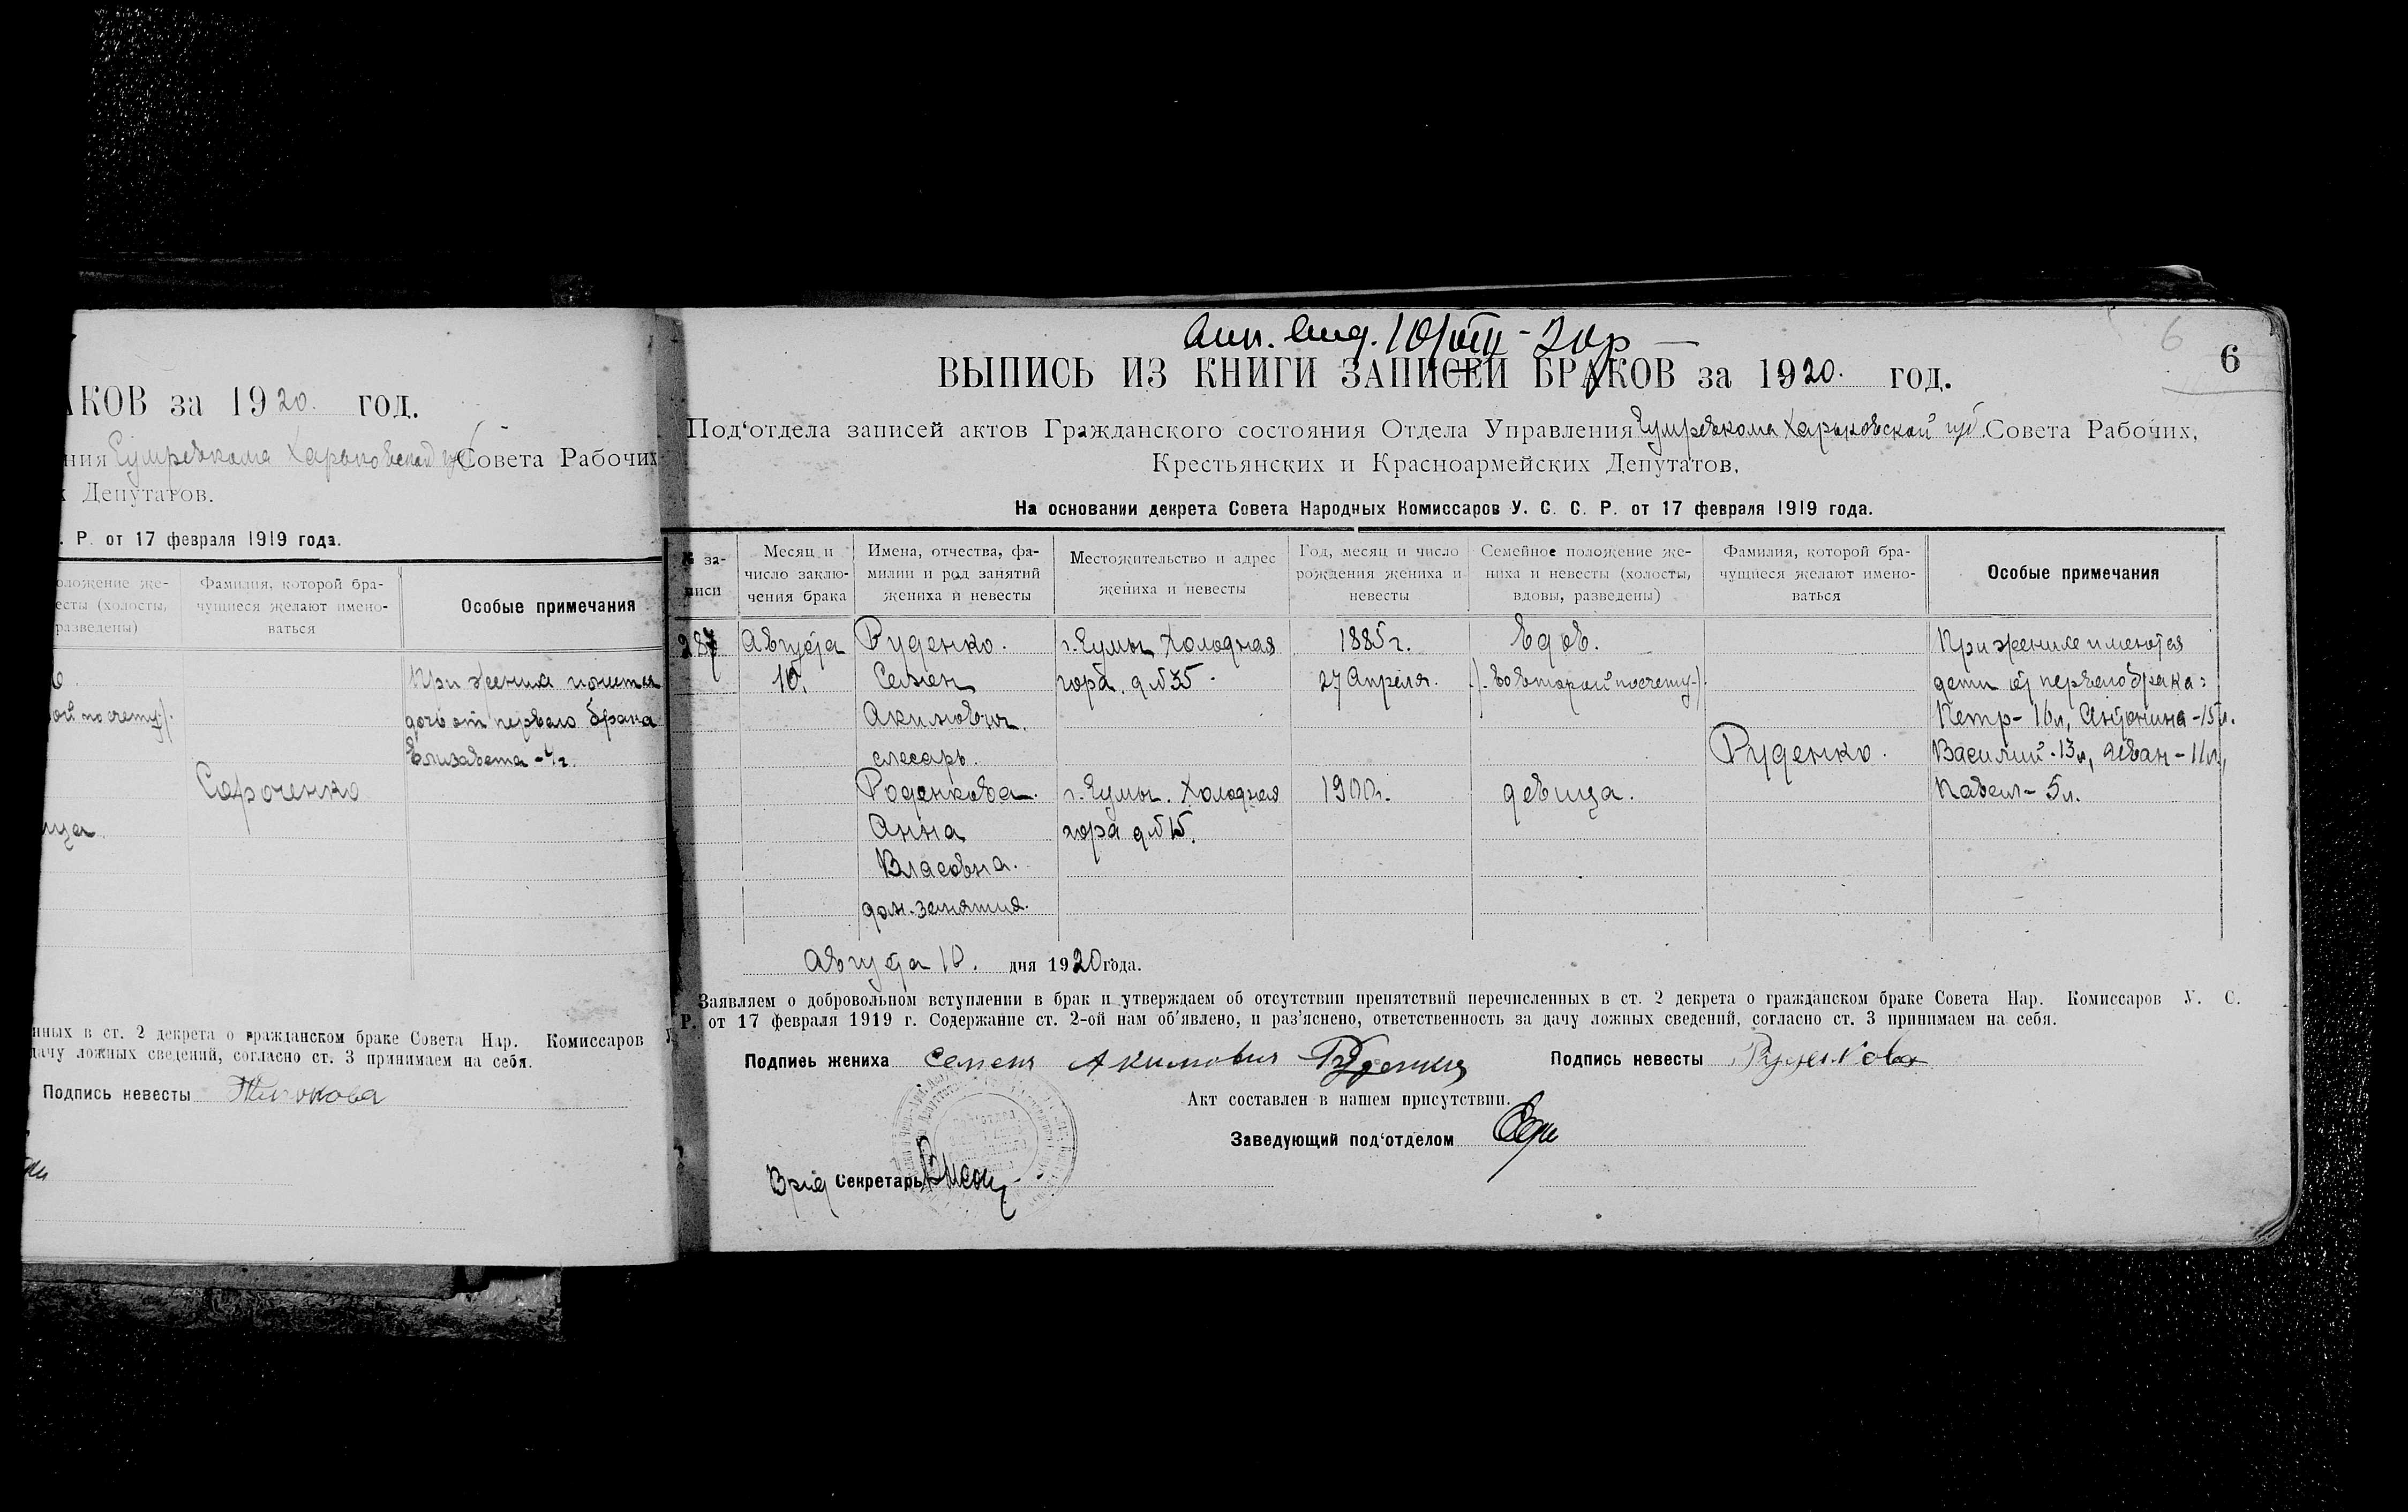 АКОВ за 1920. год.
ния Сумревкома Харьковской губ Совета Рабочих
х Депутатов.
. Р. от 17 февраля 1919 года.
оложение же-
есты (холосты,
разведены)
Фамилия, которой бра-
чущиеся желают имено-
ваться
Особые примечания
При женихе
ой по счету).
дочь от первого брака
Елизавета
Сороченко
ица.
нных в ст. 2 декрета о гражданском браке Совета Нар. Комиссаров У
дачу ложных сведений, согласно ст. 3 принимаем на себя.
Подпись невесты
6
6
ВЫПИСЬ ИЗ КНИГИ ЗАПИСЕЙ БРАКОВ за 1920. год.
Под‘отдела записей актов Гражданского состояния Отдела Управления Сумревкома Харьковской губ. Совета Рабочих,
Крестьянских и Красноармейских Депутатов,
На основании декрета Совета Народных Комиссаров У. С. С. Р. от 17 февраля 1919 года.
№ за-
писи
Месяц и
число заклю-
чения брака
Имена, отчества, фа-
милии и род занятий
жениха и невесты
Местожительство и адрес
жениха и невесты
Год, месяц и число
рождения жениха и
невесты
Семейное положение же-
ниха и невесты (холосты,
вдовы, разведены)
Фамилия, которой бра-
чущиеся желают имено-
ваться
Особые примечания
287
Августа
10.
Руденко.
Семен
Акимович.
слесарь.
г. Сумы Холодная
гора. д. № 35.
1885 г.
27 Апреля.
вдов.
(во второй по счету)
Руденко.
При женихе имеются
дети от первого брака:
Петр - 16 л, Антонина - 15 л.
Василий - 13 л, Иван - 11 л,
Павел - 5 л.
Роденкова.
Анна
Власовна.
дом. занятия.
г. Сумы. Холодная
гора д. № 15.
1900 г.
девица.
Августа 10. дня 1920 года.
Заявляем о добровольном вступлении в брак и утверждаем об отсутствии препятствий перечисленных в ст. 2 декрета о гражданском браке Совета Нар. Комиссаров У. С.
Р. от 17 февраля 1919 г. Содержание ст. 2-ой нам об'явлено, и раз'яснено, ответственность за дачу ложных сведений, согласно ст. 3 принимаем на себя.
Подпись жениха Семен Акимович Руденко
Подпись невесты
Акт составлен в нашем присутствии.
Заведующий под‘отделом
Врид Секретарь